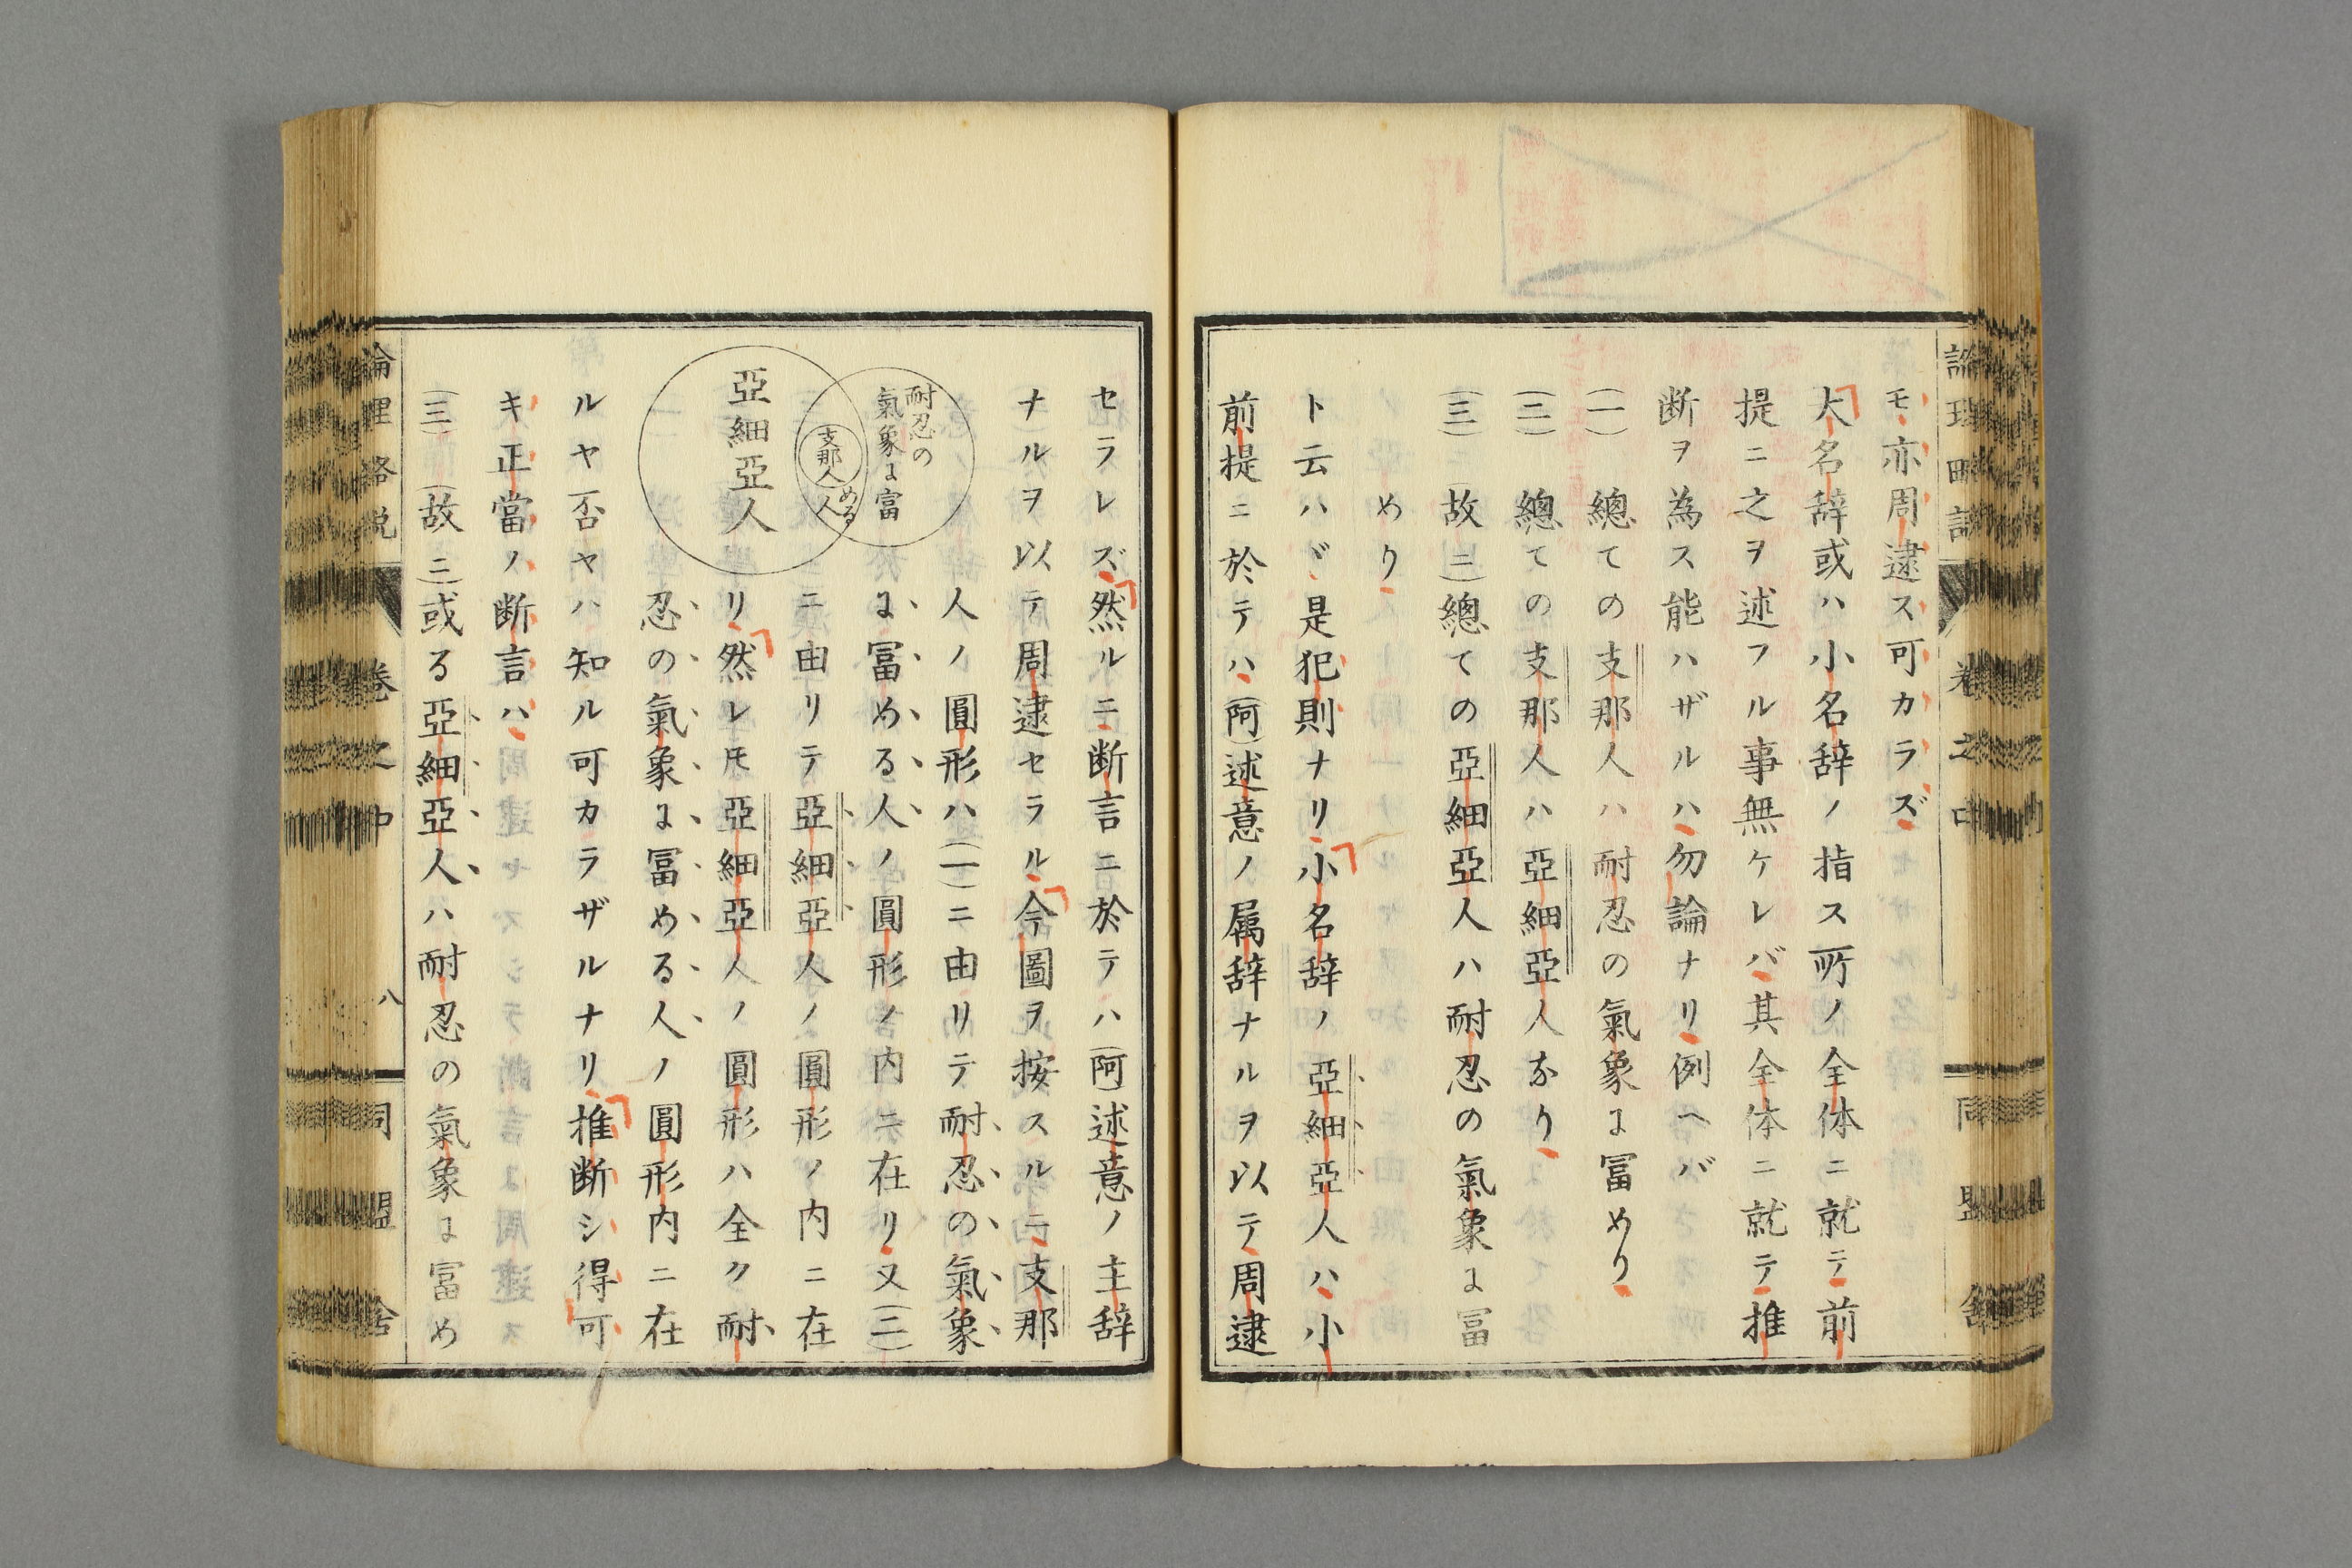 論理略説 巻之中 同盟舎
モ亦周逮ス可カラズ
大名辞或ハ小名辞ノ指ス所ノ全体ニ就テ前
提ニ之ヲ述フル事無ケレバ其全体ニ就テ推
断ヲ為ス能ハザルハ勿論ナリ例ヘバ
(一) 總ての支那人ハ耐忍の氣象に冨めり
(二) 總ての支那人ハ亞細亞人なり
(三) 故ニ(總ての亞細亞人ハ耐忍の氣象に冨
めり
ト云ハヾ是犯則ナリ小名辞ノ亞細亞人ハ小
前提ニ於テハ(阿)述意ノ属辞ナルヲ以テ周逮
セラレズ然ルニ断言ニ於テハ(阿)述意ノ主辞
ナルヲ以テ周逮セラル今圖ヲ按スルニ支那
人ノ圓形ハ(一)ニ由リテ耐忍の氣象
に冨める人ノ圓形ノ内ニ在リ又(二)
ニ由リテ亞細亞人ノ圓形ノ内ニ在
リ然レ𪜈亞細亞人ノ圓形ハ全ク耐
忍の氣象に冨める人ノ圓形内ニ在
耐忍の
氣象に富
める
人
支那人
亞細亞人
ルヤ否ヤハ知ル可カラザルナリ推断シ得可
キ正當ノ断言ハ
(三) 故ニ(或る亞細亞人ハ耐忍の氣象に冨め
論理略説 巻之中 八 同盟舎